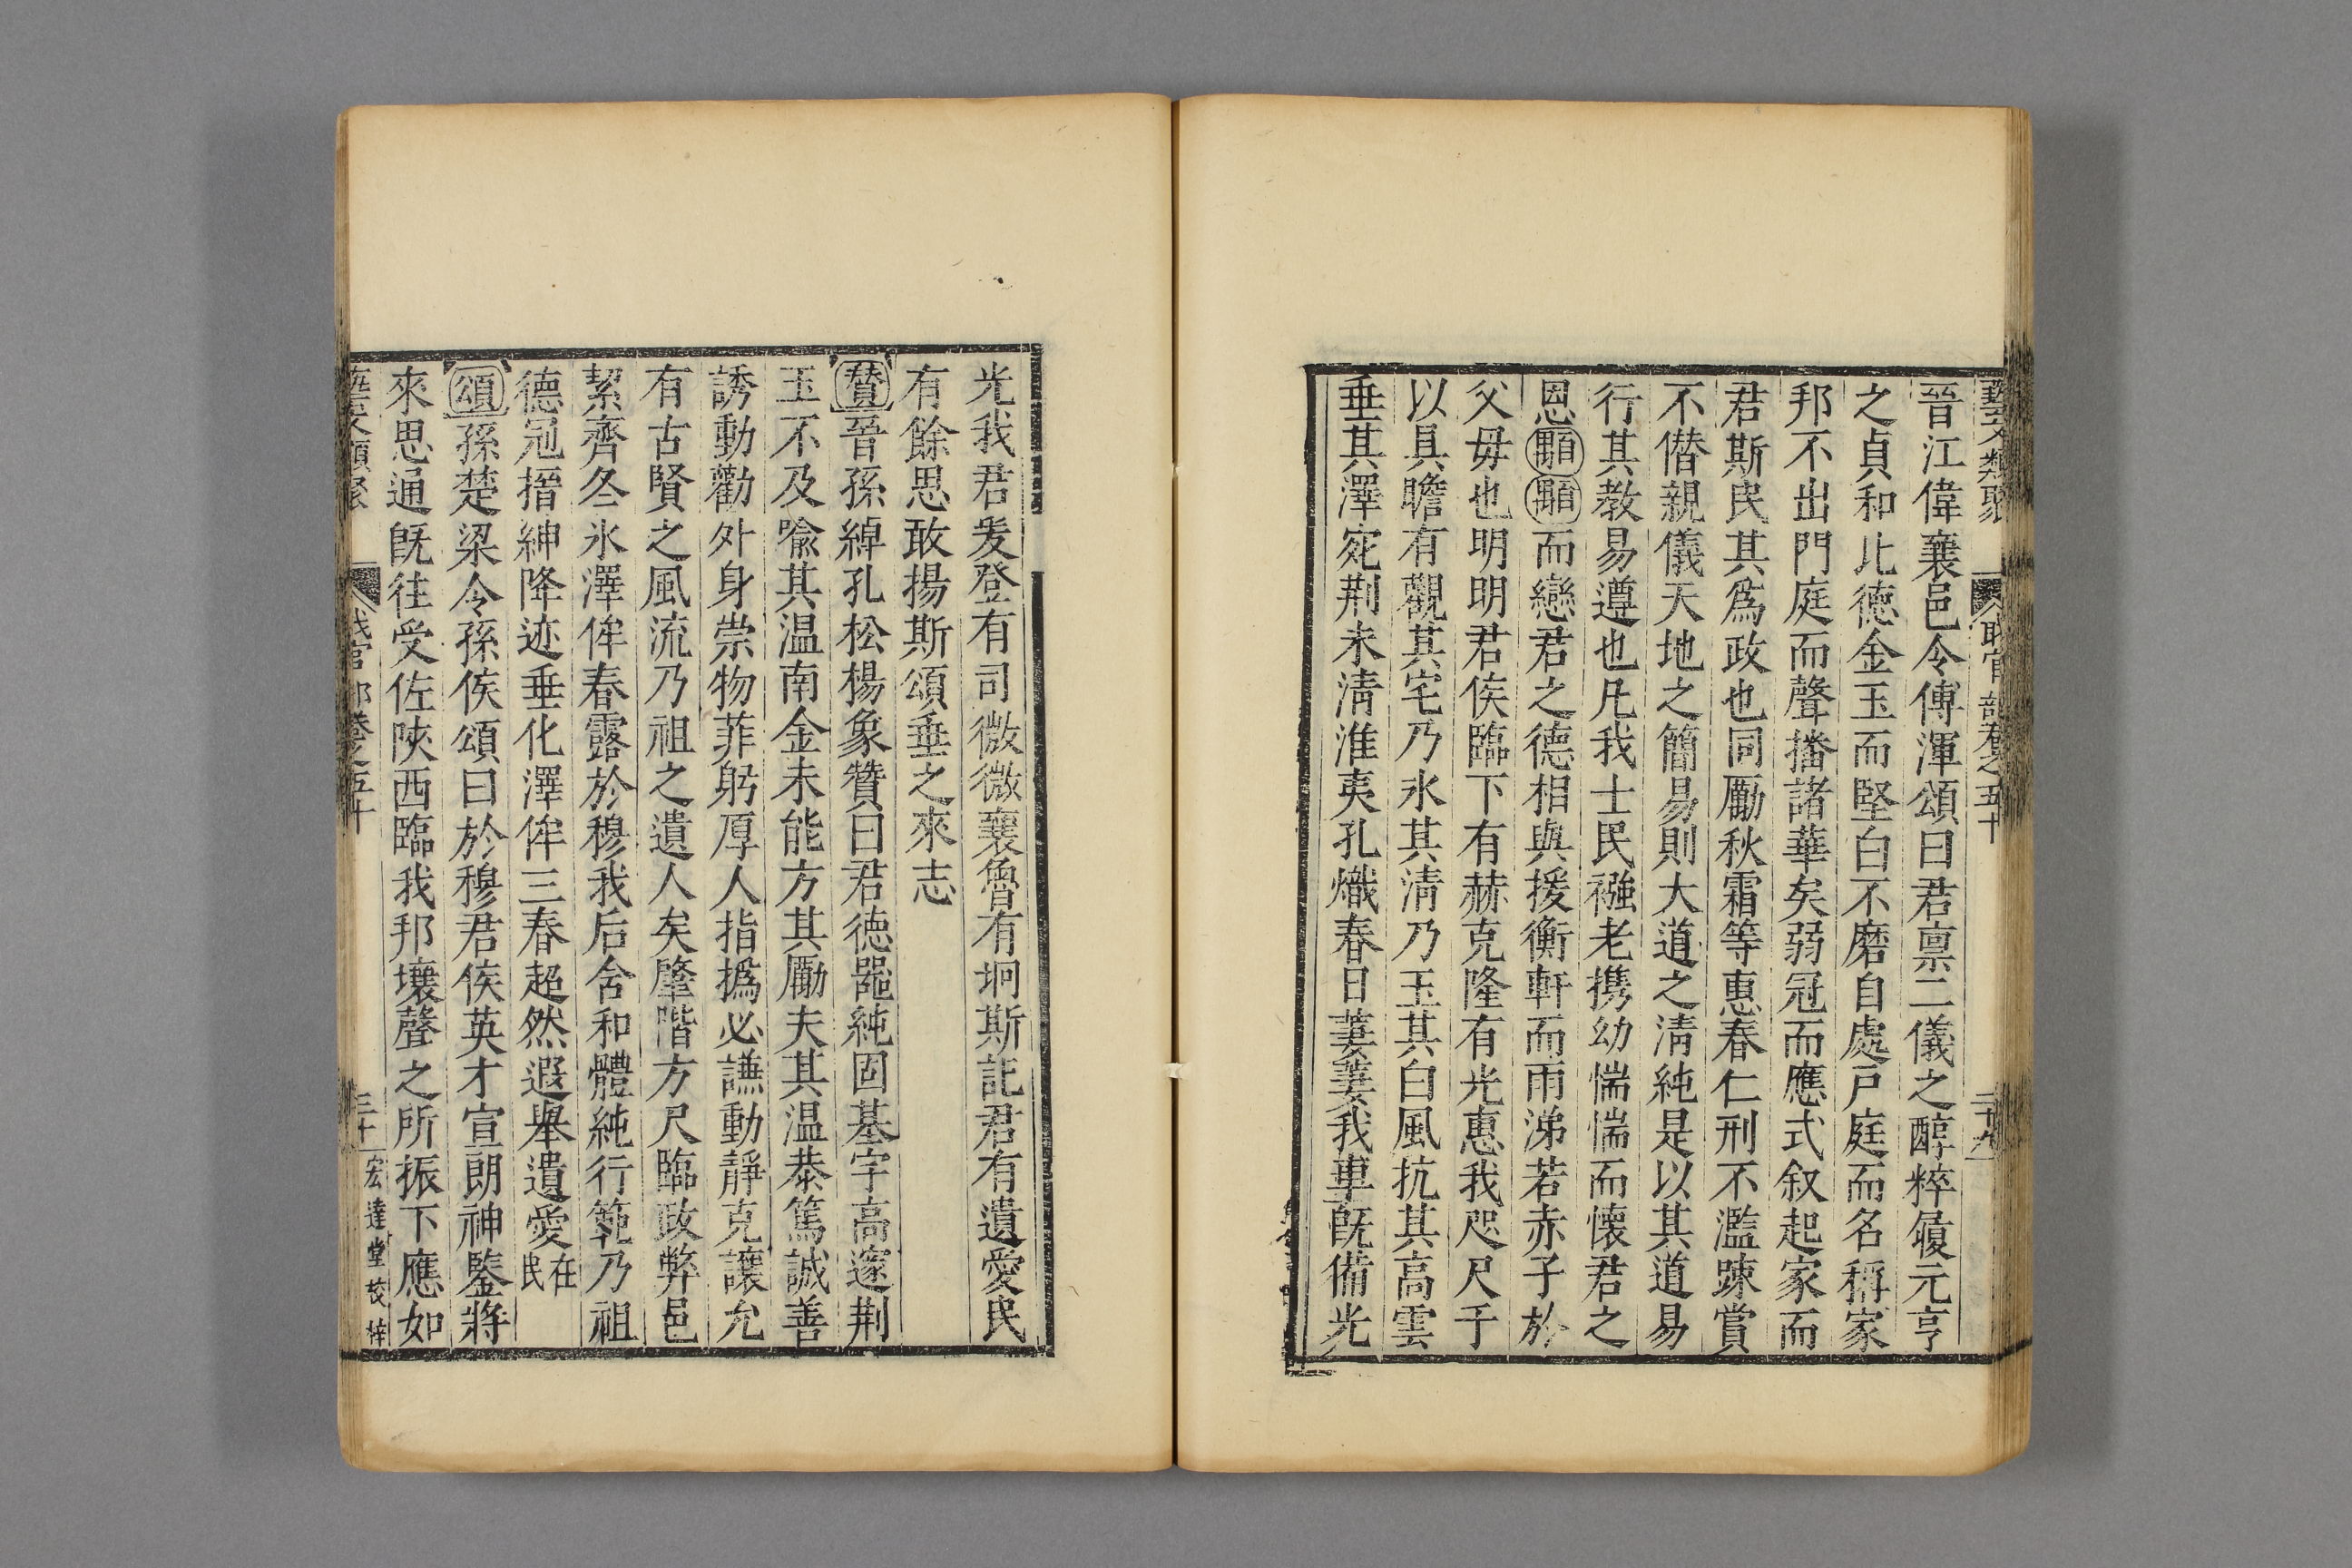 藝文類聚 職官部卷之五十 二十九
晉江偉襄邑令傅渾頌曰君禀二儀之醇粹履元亨
之貞和比德金玉而堅白不磨自處戸庭而名稱家
邦不出門庭而聲播諸華矣弱冠而應式叙起家而
君斯民其為政也同勵秋霜等惠春仁刑不濫踈賞
不僣親儀天地之簡易則大道之清純是以其道易
行其教易遵也凡我士民襁老携幼惴惴而懐君之
恩顒顒而戀君之德相與援衡軒而雨涕若赤子於
父母也明明君侯臨下有赫克隆有光惠我咫尺于
以具瞻有觀其宅乃氷其清乃玉其白風抗其高雲
垂其澤宛荆未清淮夷孔熾春日萋萋我車既備光
光我君爰登有司微微襄魯有坰斯託君有遺愛民
有餘思敢揚斯頌垂之來志
贊晉孫綽孔松楊象贊曰君德器純固基宇高邃荆
玉不及喻其温南金未能方其勵夫其温恭篤誠善
誘動勸外身崇物菲躬厚人指撝必謙動靜克讓允
有古賢之風流乃祖之遺人矣肇階方尺臨政弊邑
絜齊冬氷澤侔春露於穆我后含和體純行範乃祖
德冠搢紳降迹垂化澤侔三春超然遐舉遺愛在民
頌孫楚梁令孫侯頌曰於穆君侯英才宣朗神鑒將
來思通既往受佐陝西臨我邦壤聲之所振下應如
藝文類聚 職官部卷之五十 三十 宏達堂校梓